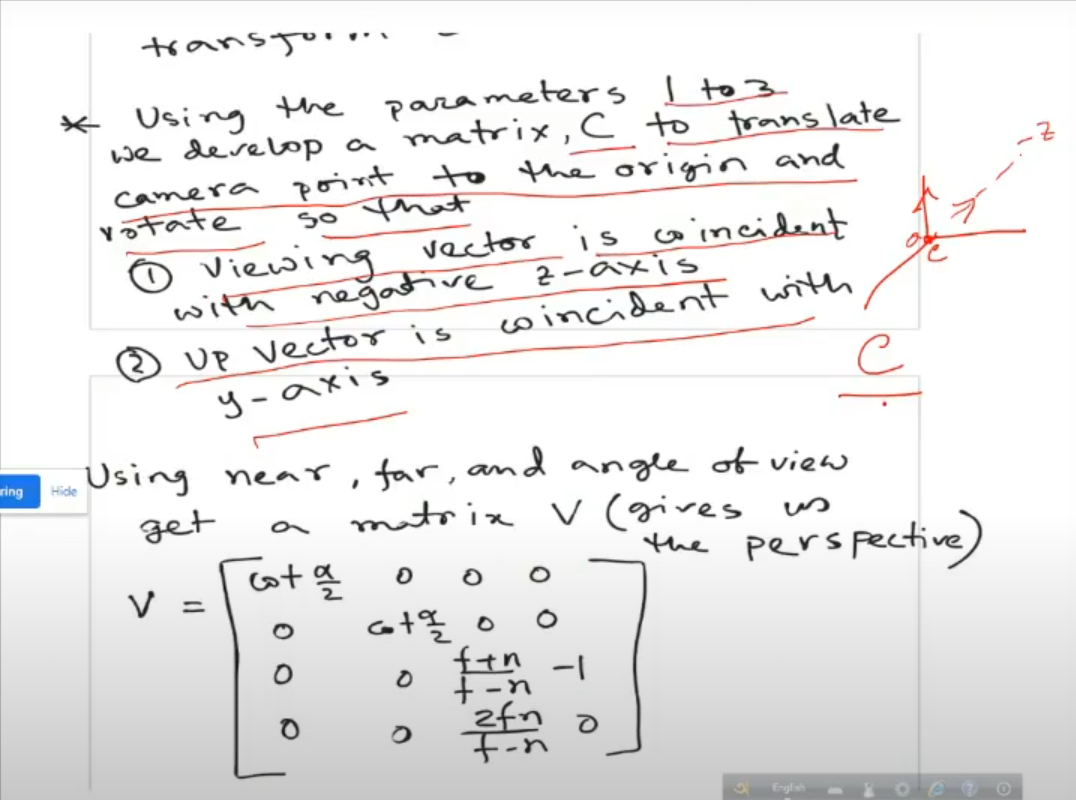 transform
* Using the parameters 1 to 3
we develop a matrix, C to translate
camera point to the origin and
rotate so that
① Viewing vector is coincident
with negative z-axis
② UP Vector is coincident with
y-axis
-z
C
C
Using near, far, and angle of view
get a matrix V (gives us
the perspective)
ring Hide
V = [ cot α/2 0 0 0
0 cot α/2 0 0
0 0 f+n/f-n -1
0 0 2fn/f-n 0 ]
English